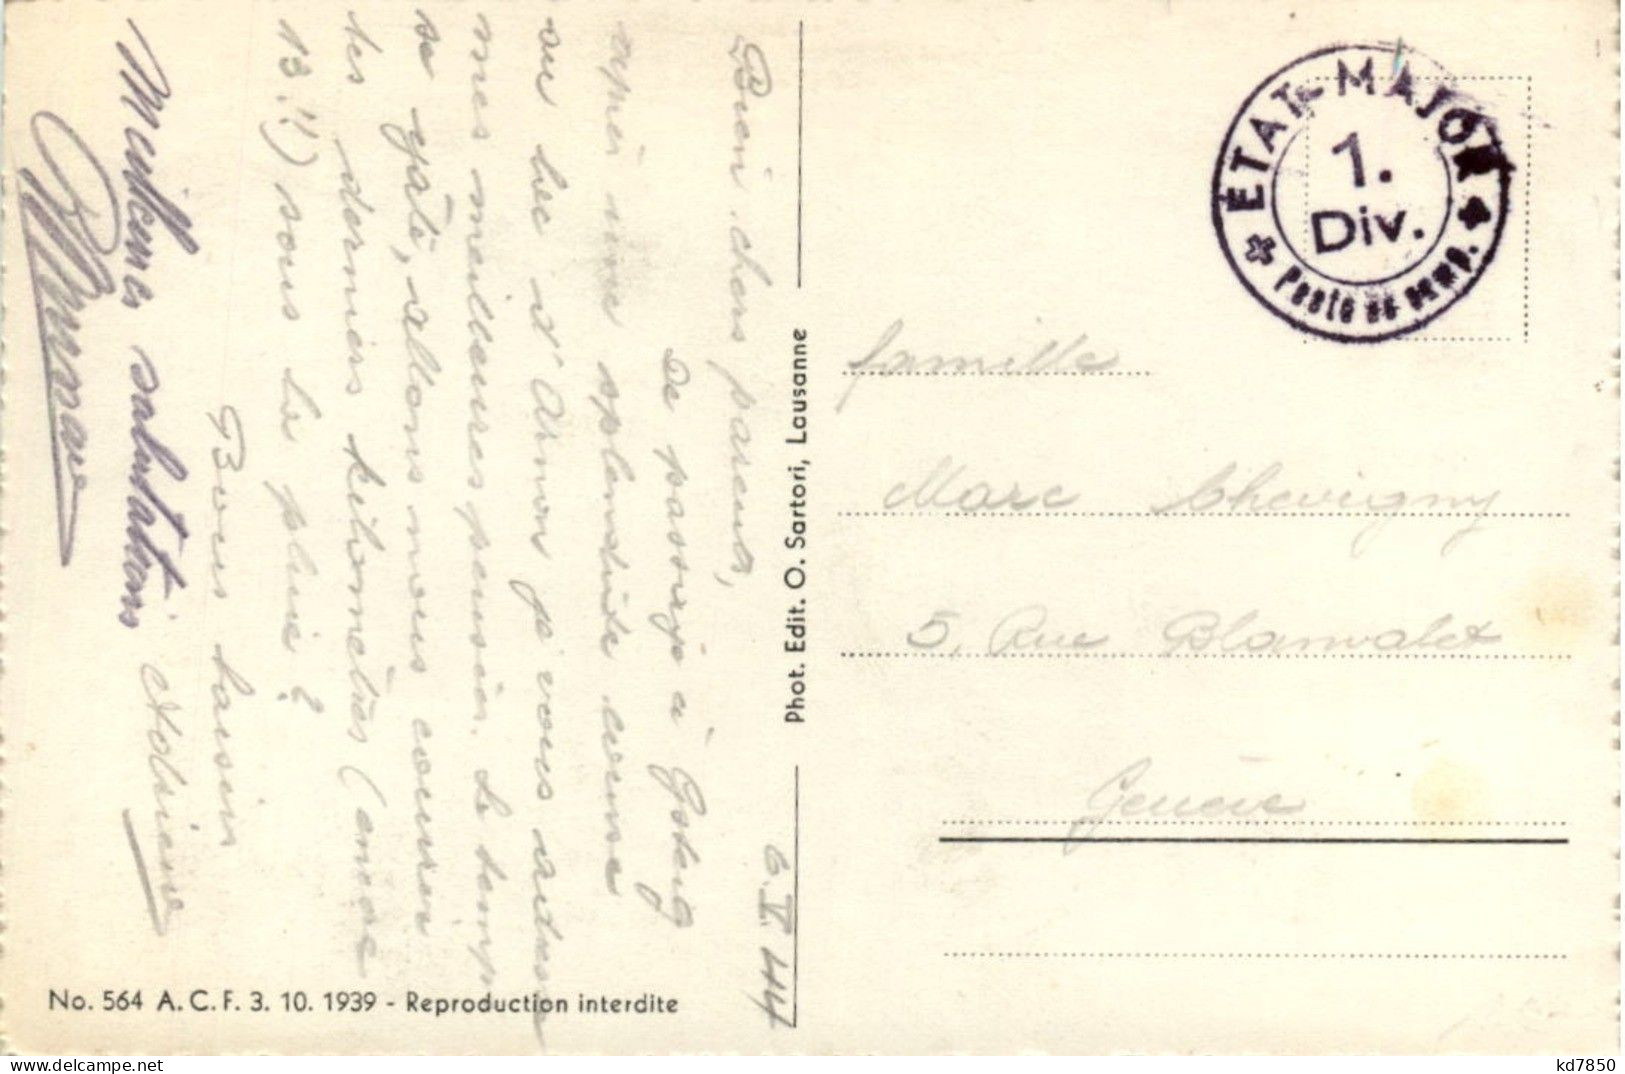 6.V.44
Bien chers parents,
De passage à Gsteig
après une splendide course
au lac d'Arnon je vous adresse
mes meilleures pensées. Le temps
se gâte, allons nous courir
les derniers kilomètres (encore
13!!) sous la pluie?
Bons baisers
Meilleures salutations
ETAT-MAJOR
1.
Div.
Poste de comp.
famille
Marc Chevigny
5, Rue Blanvalet
Genève
Phot. Edit. O. Sartori, Lausanne
No. 564 A.C.F. 3. 10. 1939 - Reproduction interdite
kd7850